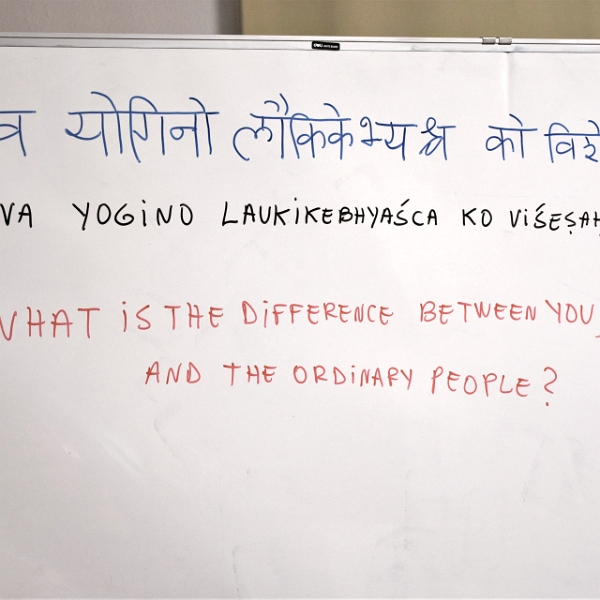 व योगिनो लौकिकेभ्यश्च को विशे
VA YOGINO LAUKIKEBHYAŚCA KO VIŚEṢAH
WHAT IS THE DIFFERENCE BETWEEN YOU,
AND THE ORDINARY PEOPLE?